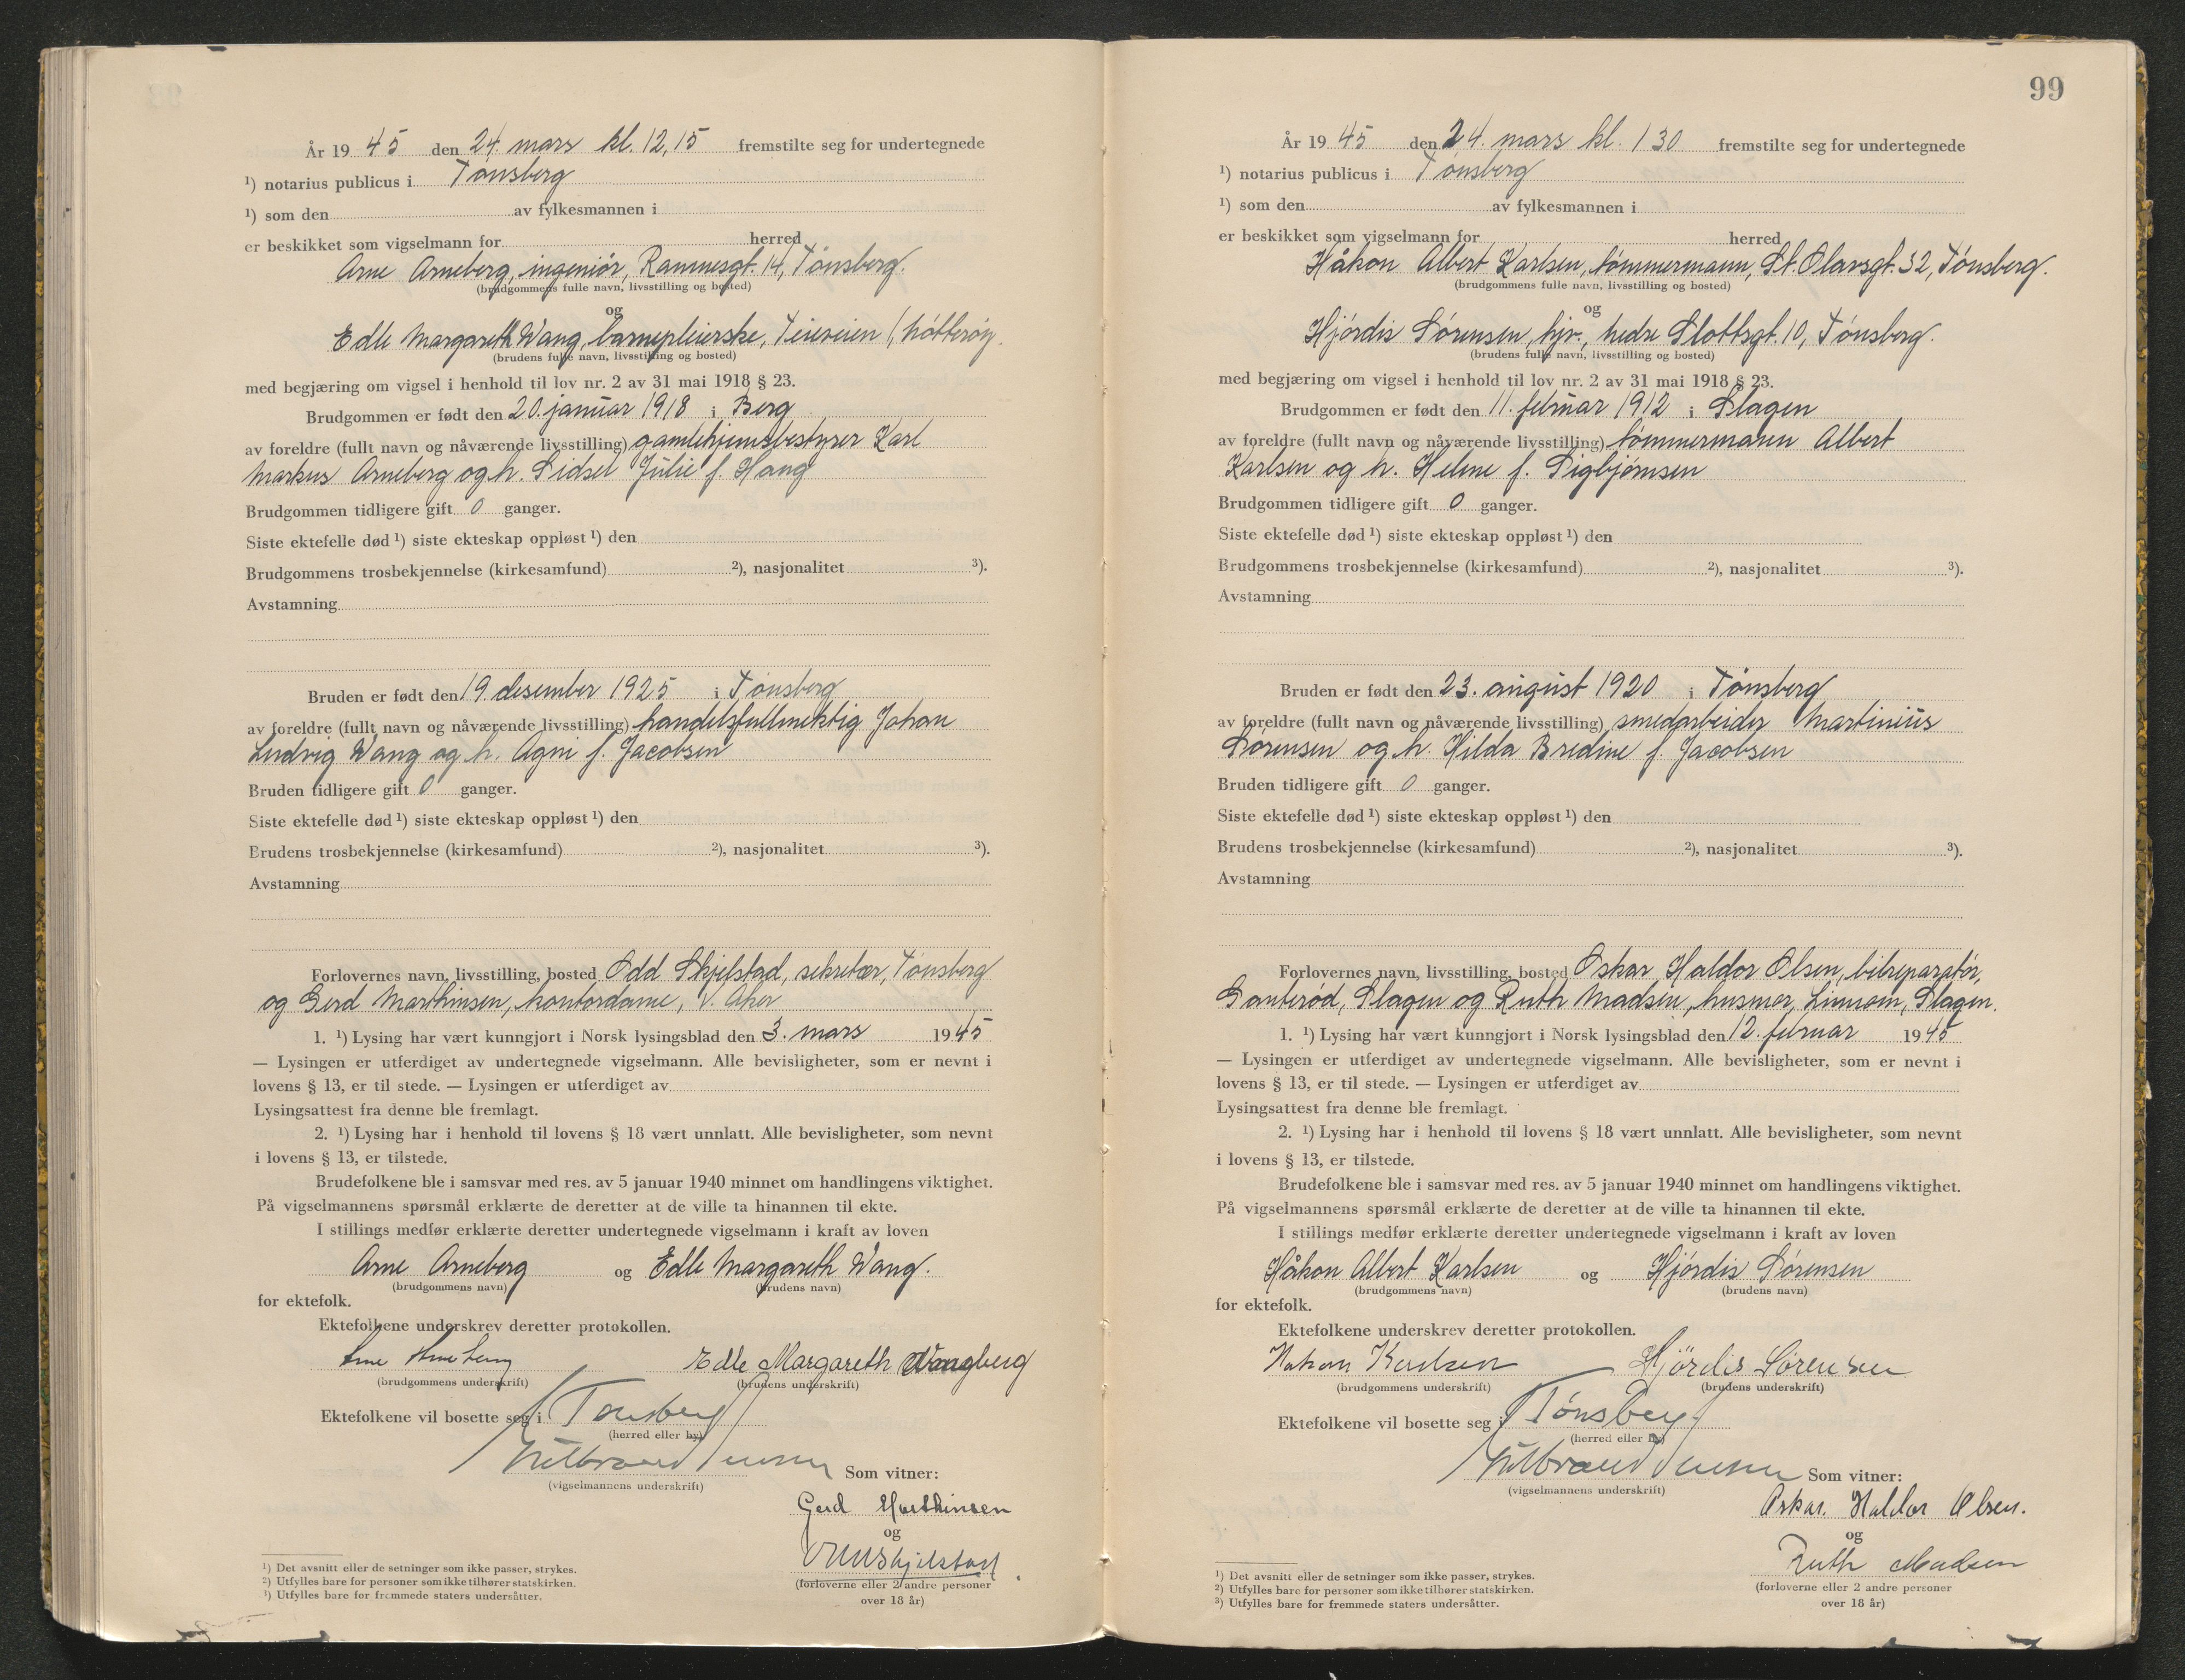 År 1945 den 24. mars kl. 12,15 fremstilte seg for undertegnede
¹) notarius publicus i Tønsberg
¹) som den av fylkesmannen i
er beskikket som vigselmann for herred
Arne Arneberg, ingeniør, Rammesgt. 14, Tønsberg.
(brudgommens fulle navn, livsstilling og bosted)
og
Edle Margareth Wang, barnepleierske, Teieveien 1, Nøtterøy.
(brudens fulle navn, livsstilling og bosted)
med begjæring om vigsel i henhold til lov nr. 2 av 31 mai 1918 § 23.
Brudgommen er født den 20. januar 1918 i Berg
av foreldre (fullt navn og nåværende livsstilling) gamlehjemsbestyrer Karl
Markus Arneberg og h. Sidsel Julie f. Haug
Brudgommen tidligere gift 0 ganger.
Siste ektefelle død ¹) siste ekteskap oppløst ¹) den
Brudgommens trosbekjennelse (kirkesamfund) ²), nasjonalitet ³).
Avstamning
Bruden er født den 19. desember 1925 i Tønsberg
av foreldre (fullt navn og nåværende livsstilling) handelsfullmektig Johan
Ludvig Wang og h. Agni f. Jacobsen
Bruden tidligere gift 0 ganger.
Siste ektefelle død ¹) siste ekteskap oppløst ¹) den
Brudens trosbekjennelse (kirkesamfund) ²), nasjonalitet ³).
Avstamning
Forlovernes navn, livsstilling, bosted Odd Skjelstad, sekretær, Tønsberg
og Gerd Marthinsen, kontordame, V. Aker
1. ¹) Lysing har vært kunngjort i Norsk lysingsblad den 3. mars 1945
— Lysingen er utferdiget av undertegnede vigselmann. Alle bevisligheter, som er nevnt i
lovens § 13, er til stede. — Lysingen er utferdiget av
Lysingsattest fra denne ble fremlagt.
2. ¹) Lysing har i henhold til lovens § 18 vært unnlatt. Alle bevisligheter, som nevnt
i lovens § 13, er tilstede.
Brudefolkene ble i samsvar med res. av 5 januar 1940 minnet om handlingens viktighet.
På vigselmannens spørsmål erklærte de deretter at de ville ta hinannen til ekte.
I stillings medfør erklærte deretter undertegnede vigselmann i kraft av loven
Arne Arneberg og Edle Margareth Wang.
(brudgommens navn) (brudens navn)
for ektefolk.
Ektefolkene underskrev deretter protokollen.
Arne Arneberg Edle Margareth
(brudgommens underskrift) (brudens underskrift)
Ektefolkene vil bosette seg i Tønsberg
(herred eller by)
Som vitner:
(vigselmannens underskrift)
Gerd Marthinsen
og
Skjelstad
(forloverne eller 2 andre personer
over 18 år)
¹) Det avsnitt eller de setninger som ikke passer, strykes.
²) Utfylles bare for personer som ikke tilhører statskirken.
³) Utfylles bare for fremmede staters undersåtter.
99
År 1945 den 24. mars kl. 130 fremstilte seg for undertegnede
¹) notarius publicus i Tønsberg
¹) som den av fylkesmannen i
er beskikket som vigselmann for herred
Håkon Albert Karlsen, tømmermann, St. Olavsgt. 32, Tønsberg.
(brudgommens fulle navn, livsstilling og bosted)
og
Hjørdis Sørensen, hjv., nedre Slottsgt. 10, Tønsberg.
(brudens fulle navn, livsstilling og bosted)
med begjæring om vigsel i henhold til lov nr. 2 av 31 mai 1918 § 23.
Brudgommen er født den 11. februar 1912 i Slagen
av foreldre (fullt navn og nåværende livsstilling) tømmermann Albert
Karlsen og h. Helene f. Sigbjørnsen
Brudgommen tidligere gift 0 ganger.
Siste ektefelle død ¹) siste ekteskap oppløst ¹) den
Brudgommens trosbekjennelse (kirkesamfund) ²), nasjonalitet ³).
Avstamning
Bruden er født den 23. august 1920 i Tønsberg
av foreldre (fullt navn og nåværende livsstilling) smedarbeider Martinius
Sørensen og h. Hilda Bredine f. Jacobsen
Bruden tidligere gift 0 ganger.
Siste ektefelle død ¹) siste ekteskap oppløst ¹) den
Brudens trosbekjennelse (kirkesamfund) ²), nasjonalitet ³).
Avstamning
Forlovernes navn, livsstilling, bosted Oskar Haldor Olsen, bilreparatør,
Gauterød, Slagen og Ruth Madsen, husmor, Linnom, Slagen.
1. ¹) Lysing har vært kunngjort i Norsk lysingsblad den 12. februar 1945
— Lysingen er utferdiget av undertegnede vigselmann. Alle bevisligheter, som er nevnt i
lovens § 13, er til stede. — Lysingen er utferdiget av
Lysingsattest fra denne ble fremlagt.
2. ¹) Lysing har i henhold til lovens § 18 vært unnlatt. Alle bevisligheter, som nevnt
i lovens § 13, er tilstede.
Brudefolkene ble i samsvar med res. av 5 januar 1940 minnet om handlingens viktighet.
På vigselmannens spørsmål erklærte de deretter at de ville ta hinannen til ekte.
I stillings medfør erklærte deretter undertegnede vigselmann i kraft av loven
Håkon Albert Karlsen og Hjørdis Sørensen
(brudgommens navn) (brudens navn)
for ektefolk.
Ektefolkene underskrev deretter protokollen.
Håkon Karlsen Hjördis Sørensen
(brudgommens underskrift) (brudens underskrift)
Ektefolkene vil bosette seg i Tønsberg
(herred eller by)
Som vitner:
(vigselmannens underskrift)
Oskar. Haldor Olsen.
og
Ruth Madsen
(forloverne eller 2 andre personer
over 18 år)
¹) Det avsnitt eller de setninger som ikke passer, strykes.
²) Utfylles bare for personer som ikke tilhører statskirken.
³) Utfylles bare for fremmede staters undersåtter.